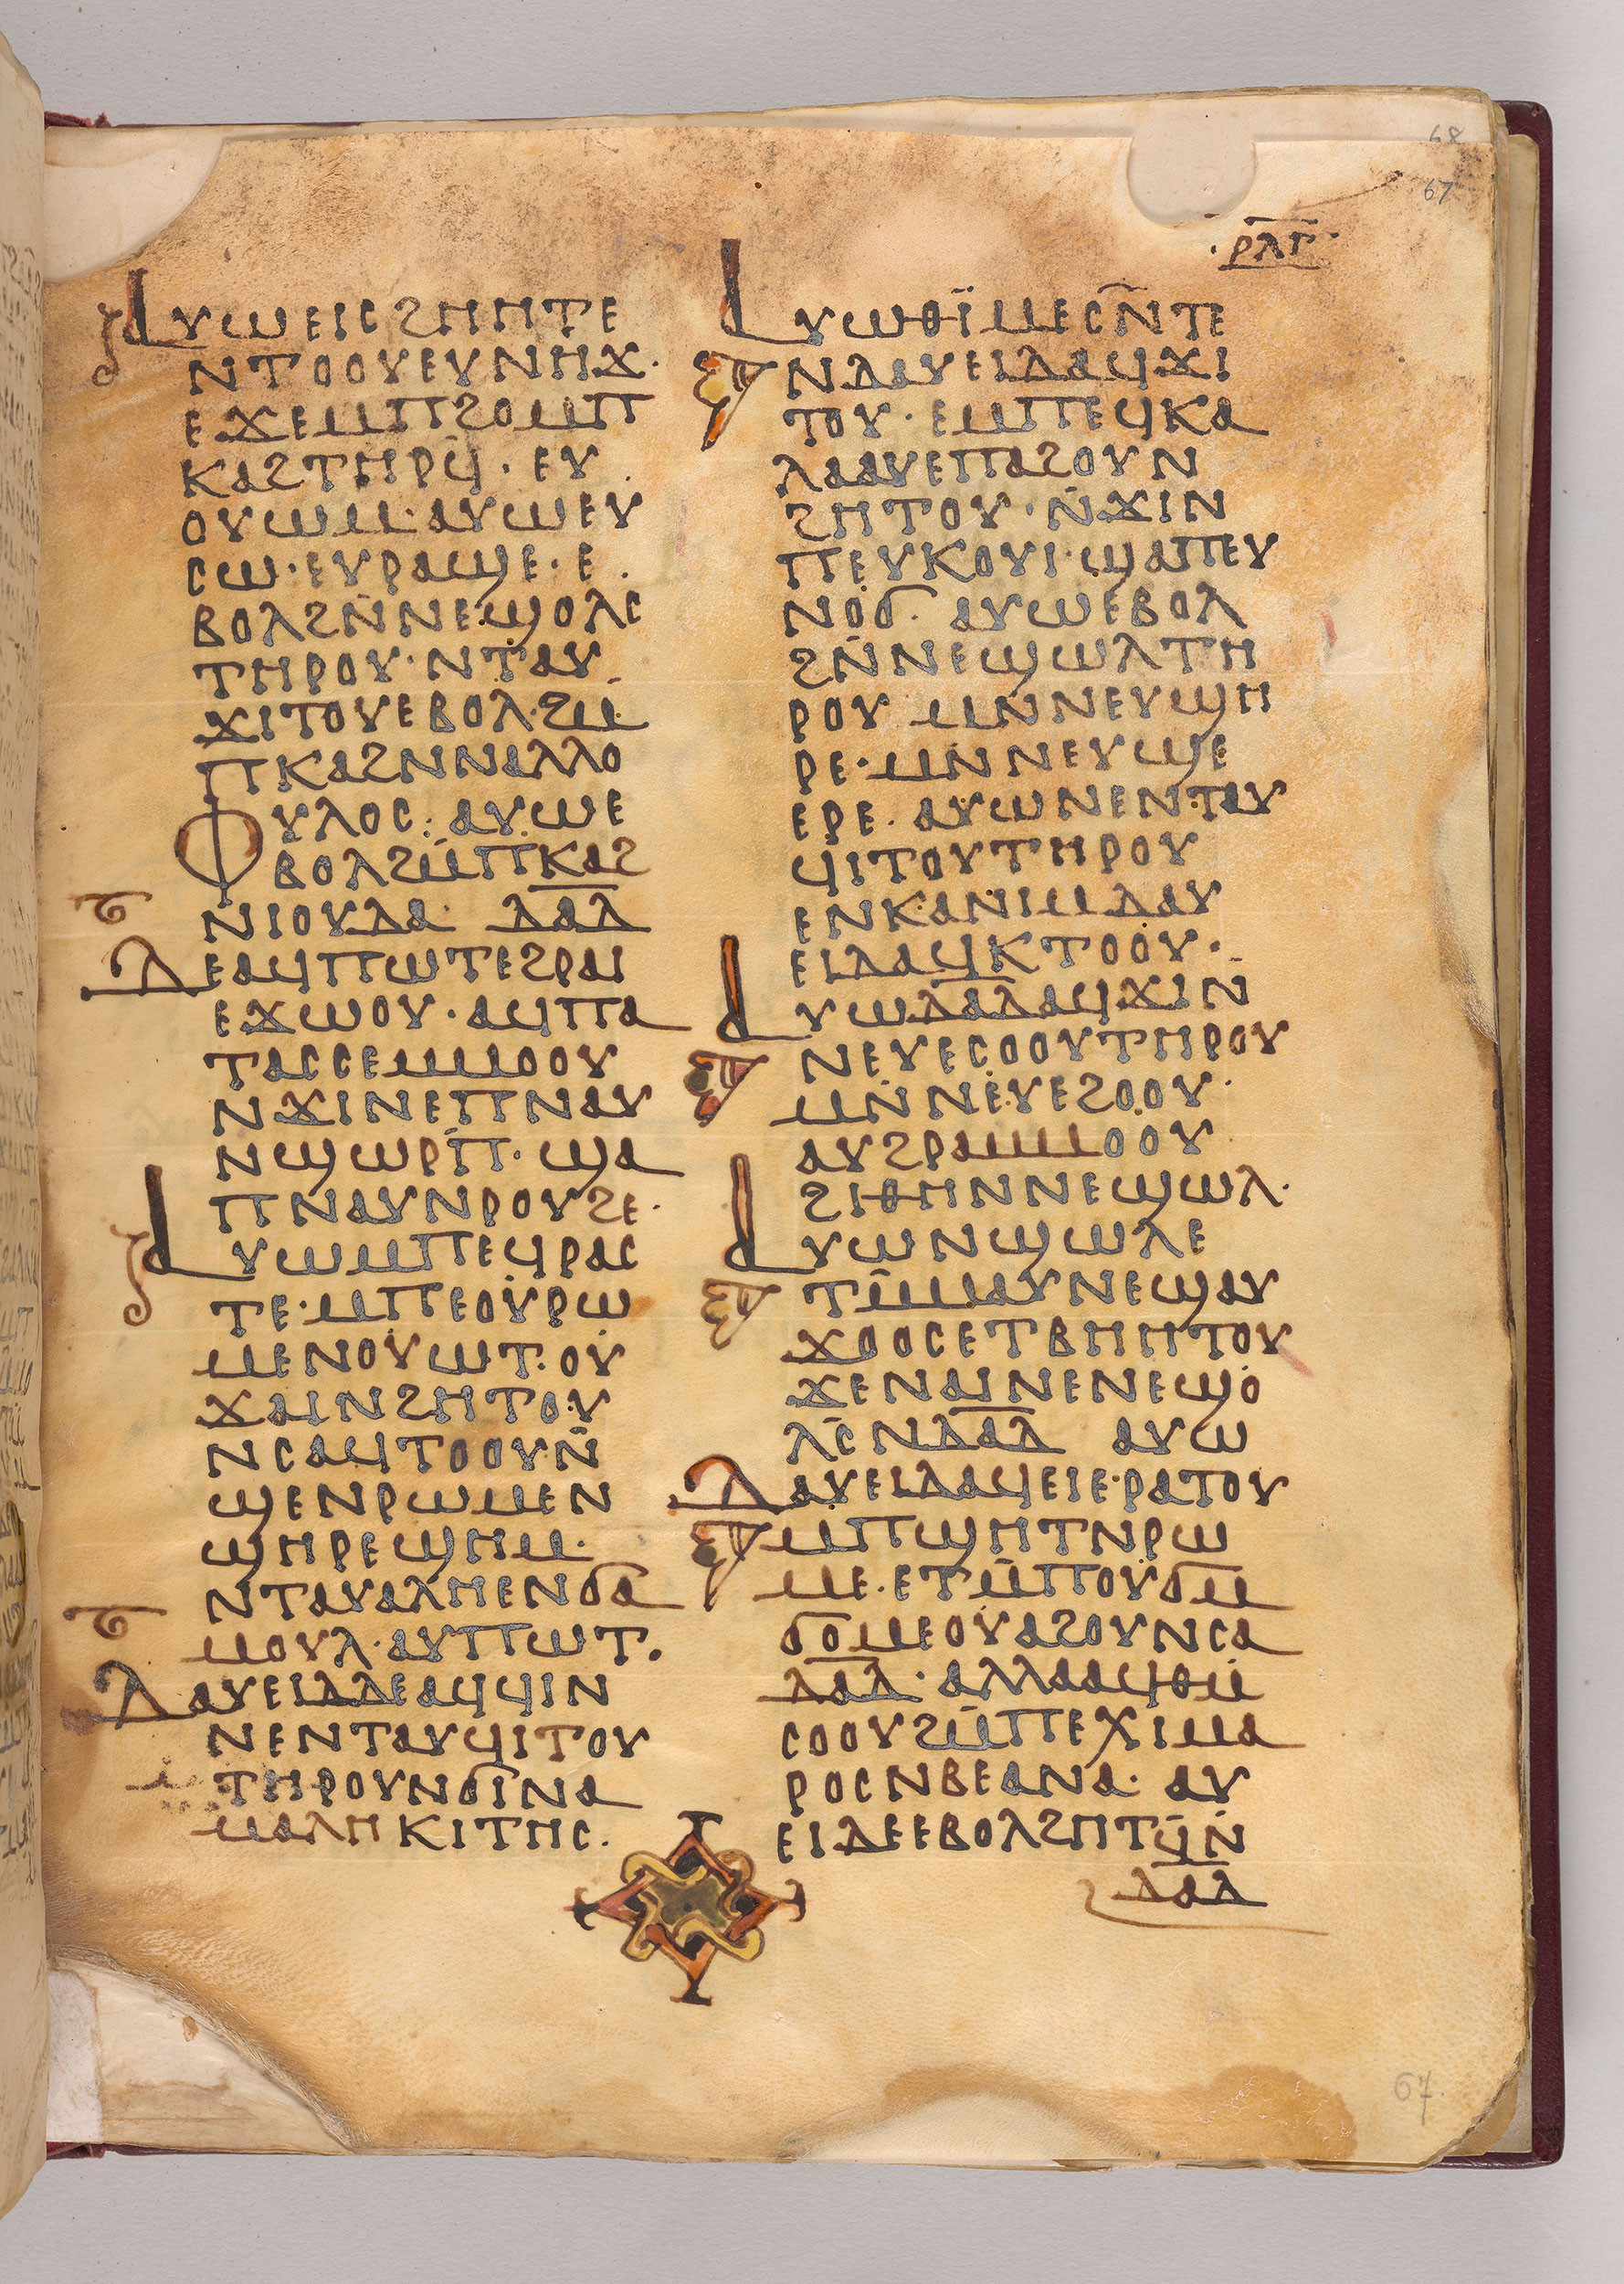 68
67
·ⲣⲗⲅ·
ⲁⲩⲱⲉⲓⲥϩⲏⲏⲧⲉ
ⲛⲧⲟⲟⲩⲉⲩⲛⲏϫ·
ⲉϫⲉⲙⲡϩⲟⲙⲡ
ⲕⲁϩⲧⲏⲣϥ·ⲉⲩ
ⲟⲩⲱⲙ·ⲁⲩⲱⲉⲩ
ⲥⲱ·ⲉⲩⲣⲁϣⲉ·ⲉ
ⲃⲟⲗϩⲛ̇ⲛⲉϣⲟⲗⲥ
ⲧⲏⲣⲟⲩ·ⲛⲧⲁⲩ
ϫⲓⲧⲟⲩⲉⲃⲟⲗ·ϩⲙ̇
ⲡⲕⲁϩⲛⲛⲁⲗⲗⲟ
ⲫⲩⲗⲟⲥ: ⲁⲩⲱⲉ
ⲃⲟⲗϩⲙ̇ⲡⲕⲁϩ
ⲛⲓⲟⲩⲇⲁ· ⲇⲁⲇ̅
ⲇⲉⲁϥⲡⲱⲧⲉϩⲣⲁⲓ
ⲉϫⲱⲟⲩ·ⲁϥⲡⲁ
ⲧⲁⲥⲥⲉⲙⲙⲟⲟⲩ
ⲛϫⲓⲛⲉⲡⲛⲁⲩ
ⲛϣⲱⲣⲡ̇·ϣⲁ
ⲡⲛⲁⲩⲛⲣⲟⲩϩⲉ·
ⲁⲩⲱⲙⲡⲉϥⲣⲁⲥ
ⲧⲉ·ⲙⲡⲉⲟⲩⲣⲱ
ⲙⲉⲛⲟⲩⲱⲧ·ⲟⲩ
ϫⲁⲓⲛϩⲏⲧⲟⲩ
ⲛⲥⲁϥⲧⲟⲟⲩⲛ̄
ϣⲉⲛⲣⲱⲙⲉⲛ
ϣⲏⲣⲉϣⲏⲙ·
ⲛⲧⲁⲩⲁⲗⲏⲉⲛϭⲁ
ⲙⲟⲩⲗ·ⲁⲩⲡⲱⲧ·
ⲇⲁⲩⲉⲓⲇⲇⲉⲁϥϥⲓⲛ
ⲛⲉⲛⲧⲁⲩϥⲓⲧⲟⲩ
ⲧⲏⲣⲟⲩⲛϭⲓⲛⲁ
ⲙⲁⲗⲏⲕⲓⲧⲏⲥ·
ⲁⲩⲱⲑϊⲙⲉⲥⲛ̄ⲧⲉ
ⲛⲇⲁⲩⲉⲓⲇⲁϥϫⲓ
ⲧⲟⲩ·ⲉⲙⲡⲉϥⲕⲁ
ⲗⲁⲁⲩⲉⲡⲁϩⲟⲩⲛ
ϩⲏⲧⲟⲩ·ⲛ̇ϫⲓⲛ
ⲡⲉⲩⲕⲟⲩⲓ·ϣⲁⲡⲉⲩ
ⲛⲟϭ· ⲁⲩⲱⲉⲃⲟⲗ
ϩⲛ̇ⲛⲉϣⲱⲗⲧⲏ
ⲣⲟⲩ ⲙⲛ̇ⲛⲉⲩϣⲏ
ⲣⲉ·ⲙⲛ̇ⲛⲉⲩϣⲉ
ⲉⲣⲉ·ⲁⲩⲱⲛⲉⲛⲧⲁⲩ
ϥⲓⲧⲟⲩⲧⲏⲣⲟⲩ
ⲉⲛⲕⲁⲛⲓⲙⲇⲁⲩ
ⲉⲓⲇⲁϥⲕⲧⲟⲟⲩ·
ⲁⲩⲱⲇⲁⲇ̅ⲁϥϫⲓⲛ
ⲛⲉⲩⲉⲥⲟⲟⲩⲧⲏⲣⲟⲩ
ⲙⲛ̇ⲛⲉⲩⲉϩⲟⲟⲩ·
ⲁⲩϩⲣⲁⲙⲙⲟⲟⲩ
ϩⲓⲑⲏⲛⲛⲉϣⲱⲗ·
ⲁⲩⲱⲛϣⲱⲗⲉ
ⲧⲙ̇ⲙⲁⲩⲛⲉϣⲁⲩ
ϫⲟⲟⲥⲉⲧⲃⲏⲏⲧⲟⲩ
ϫⲉⲛⲁⲓⲛⲉⲛⲉϣⲟ
ⲗⲥⲛⲇⲁⲇ̅ ⲁⲩⲱ
ⲇⲁⲩⲉⲓⲇⲁϥⲉⲓⲉ·ⲣⲁⲧⲟⲩ
ⲙⲡϣⲏⲧⲛⲣⲱ
ⲙⲉ·ⲉⲧⲙ̇ⲡⲟⲩϭⲙ
ϭⲟⲙⲉⲟⲩⲁϩⲟⲩⲛⲥⲁ
ⲇⲁⲇ̅·ⲁⲗⲗⲁⲁϥⲑⲙ̇
ⲥⲟⲟⲩϩⲙ̇ⲡⲉⲭⲓⲙⲁ
ⲣⲟⲥⲛⲃⲉⲁⲛⲁ· ⲁⲩ
ⲉⲓⲇⲉⲉⲃⲟⲗϩⲏⲧϥ̄ⲛ̄
ⲇⲁⲇ̅
67.